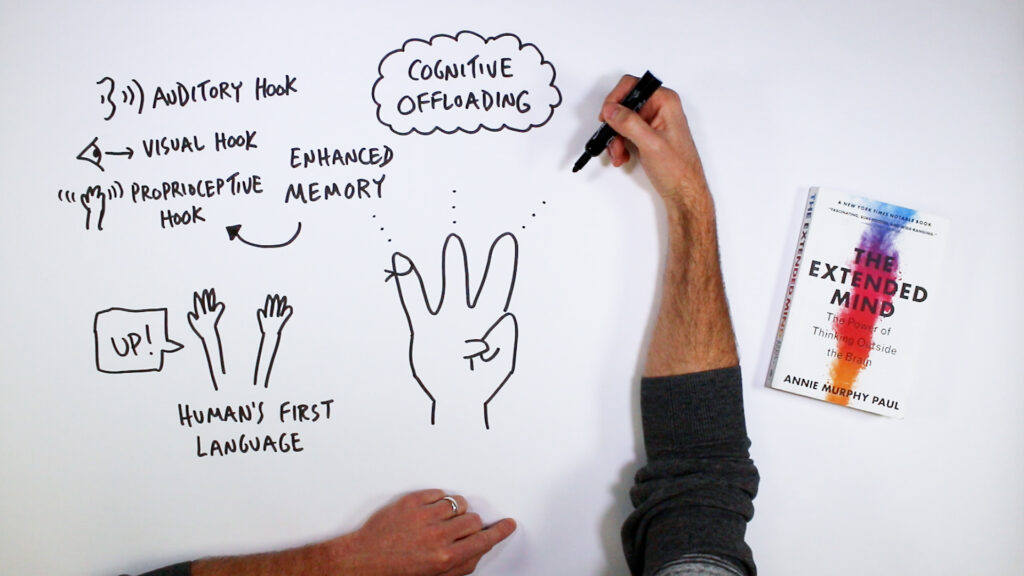 AUDITORY HOOK
VISUAL HOOK
PROPRIOCEPTIVE
HOOK
ENHANCED
MEMORY
COGNITIVE
OFFLOADING
UP!
HUMAN'S FIRST
LANGUAGE
A NEW YORK TIMES NOTABLE BOOK
THE
EXTENDED
MIND
The Power of
Thinking Outside
the Brain
ANNIE MURPHY PAUL
THE EXTENDED MIND